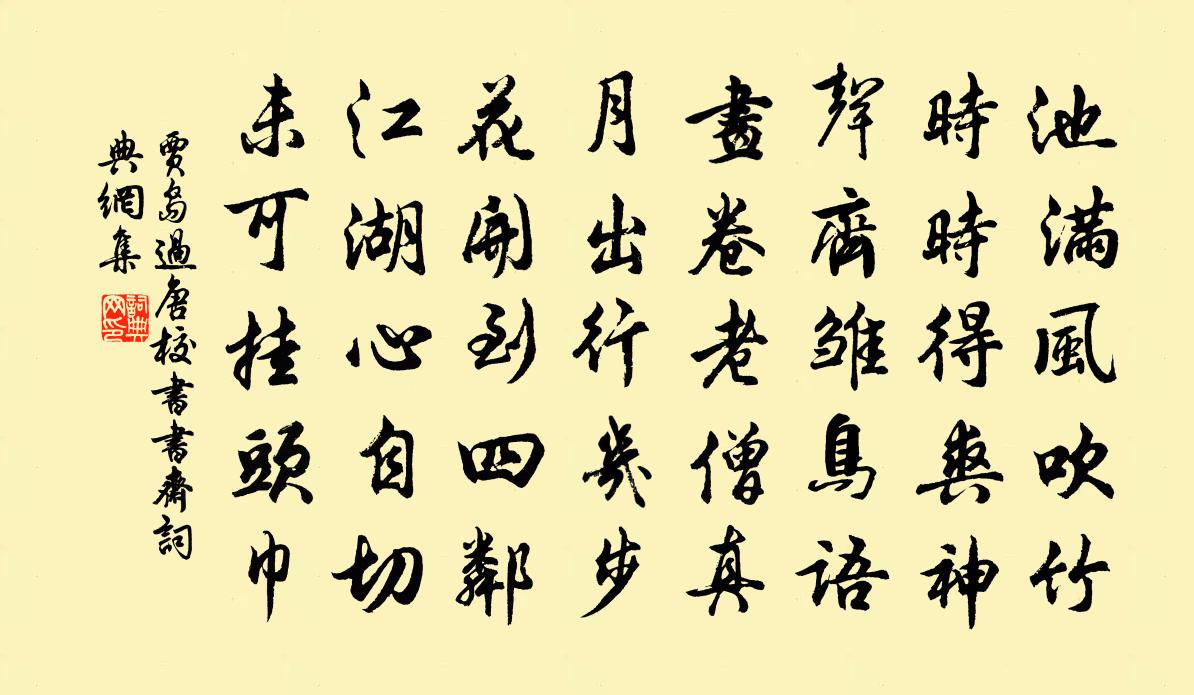 池滿風吹竹
時時得爽神
聲齊雛鳥語
畫卷老僧真
月出行幾步
花開到四鄰
江湖心自切
未可挂頭巾
賈島過唐校書書齋詞
典網集
詞典網印